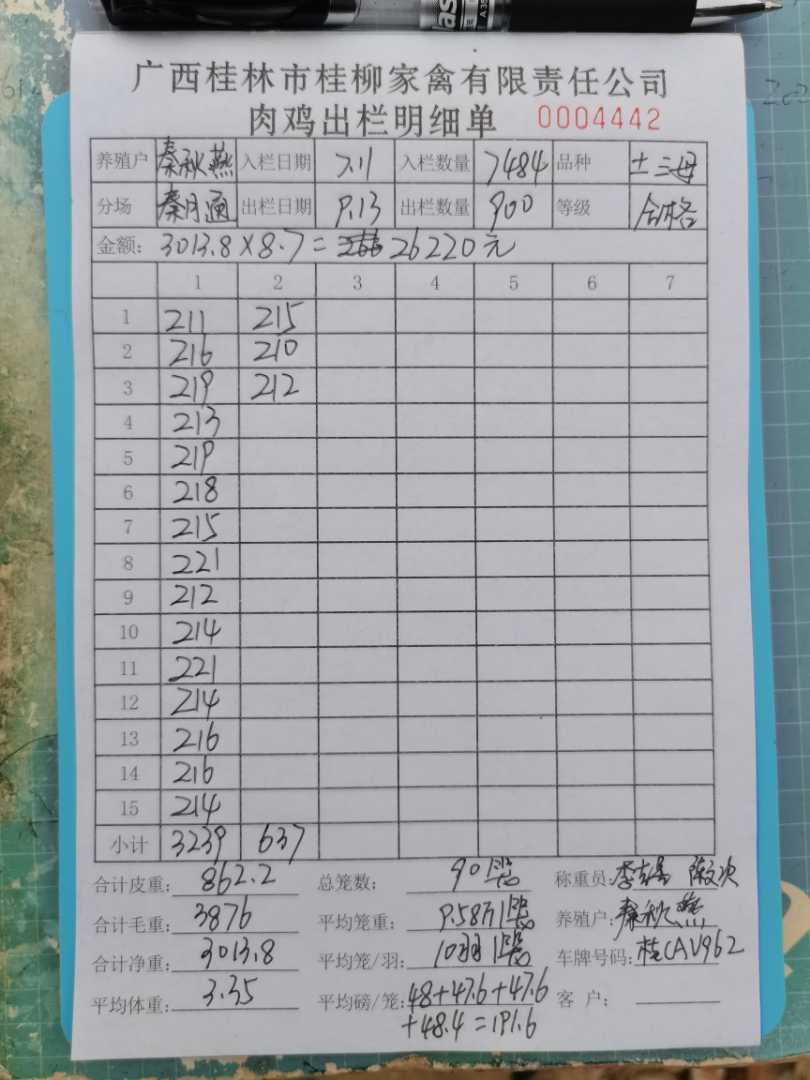 广西桂林市桂柳家禽有限责任公司
肉鸡出栏明细单 0004442
养殖户 秦秋燕 入栏日期 7.11 入栏数量 7484 品种 土三母
分场 秦月通 出栏日期 9.13 出栏数量 900 等级 合格
金额: 3013.8×8.7= 26220元
1 2 3 4 5 6 7
1 211 215
2 216 210
3 219 212
4 213
5 219
6 218
7 215
8 221
9 212
10 214
11 221
12 214
13 216
14 216
15 214
小计 3239 637
合计皮重: 862.2 总笼数: 90 称重员:
合计毛重: 3876 平均笼重: 9.58 养殖户: 秦秋燕
合计净重: 3013.8 平均笼/羽: 10羽/ 车牌号码: 桂CAV962
平均体重: 3.35 平均磅/笼: 48+47.6+47.6 客 户:
+48.4=191.6